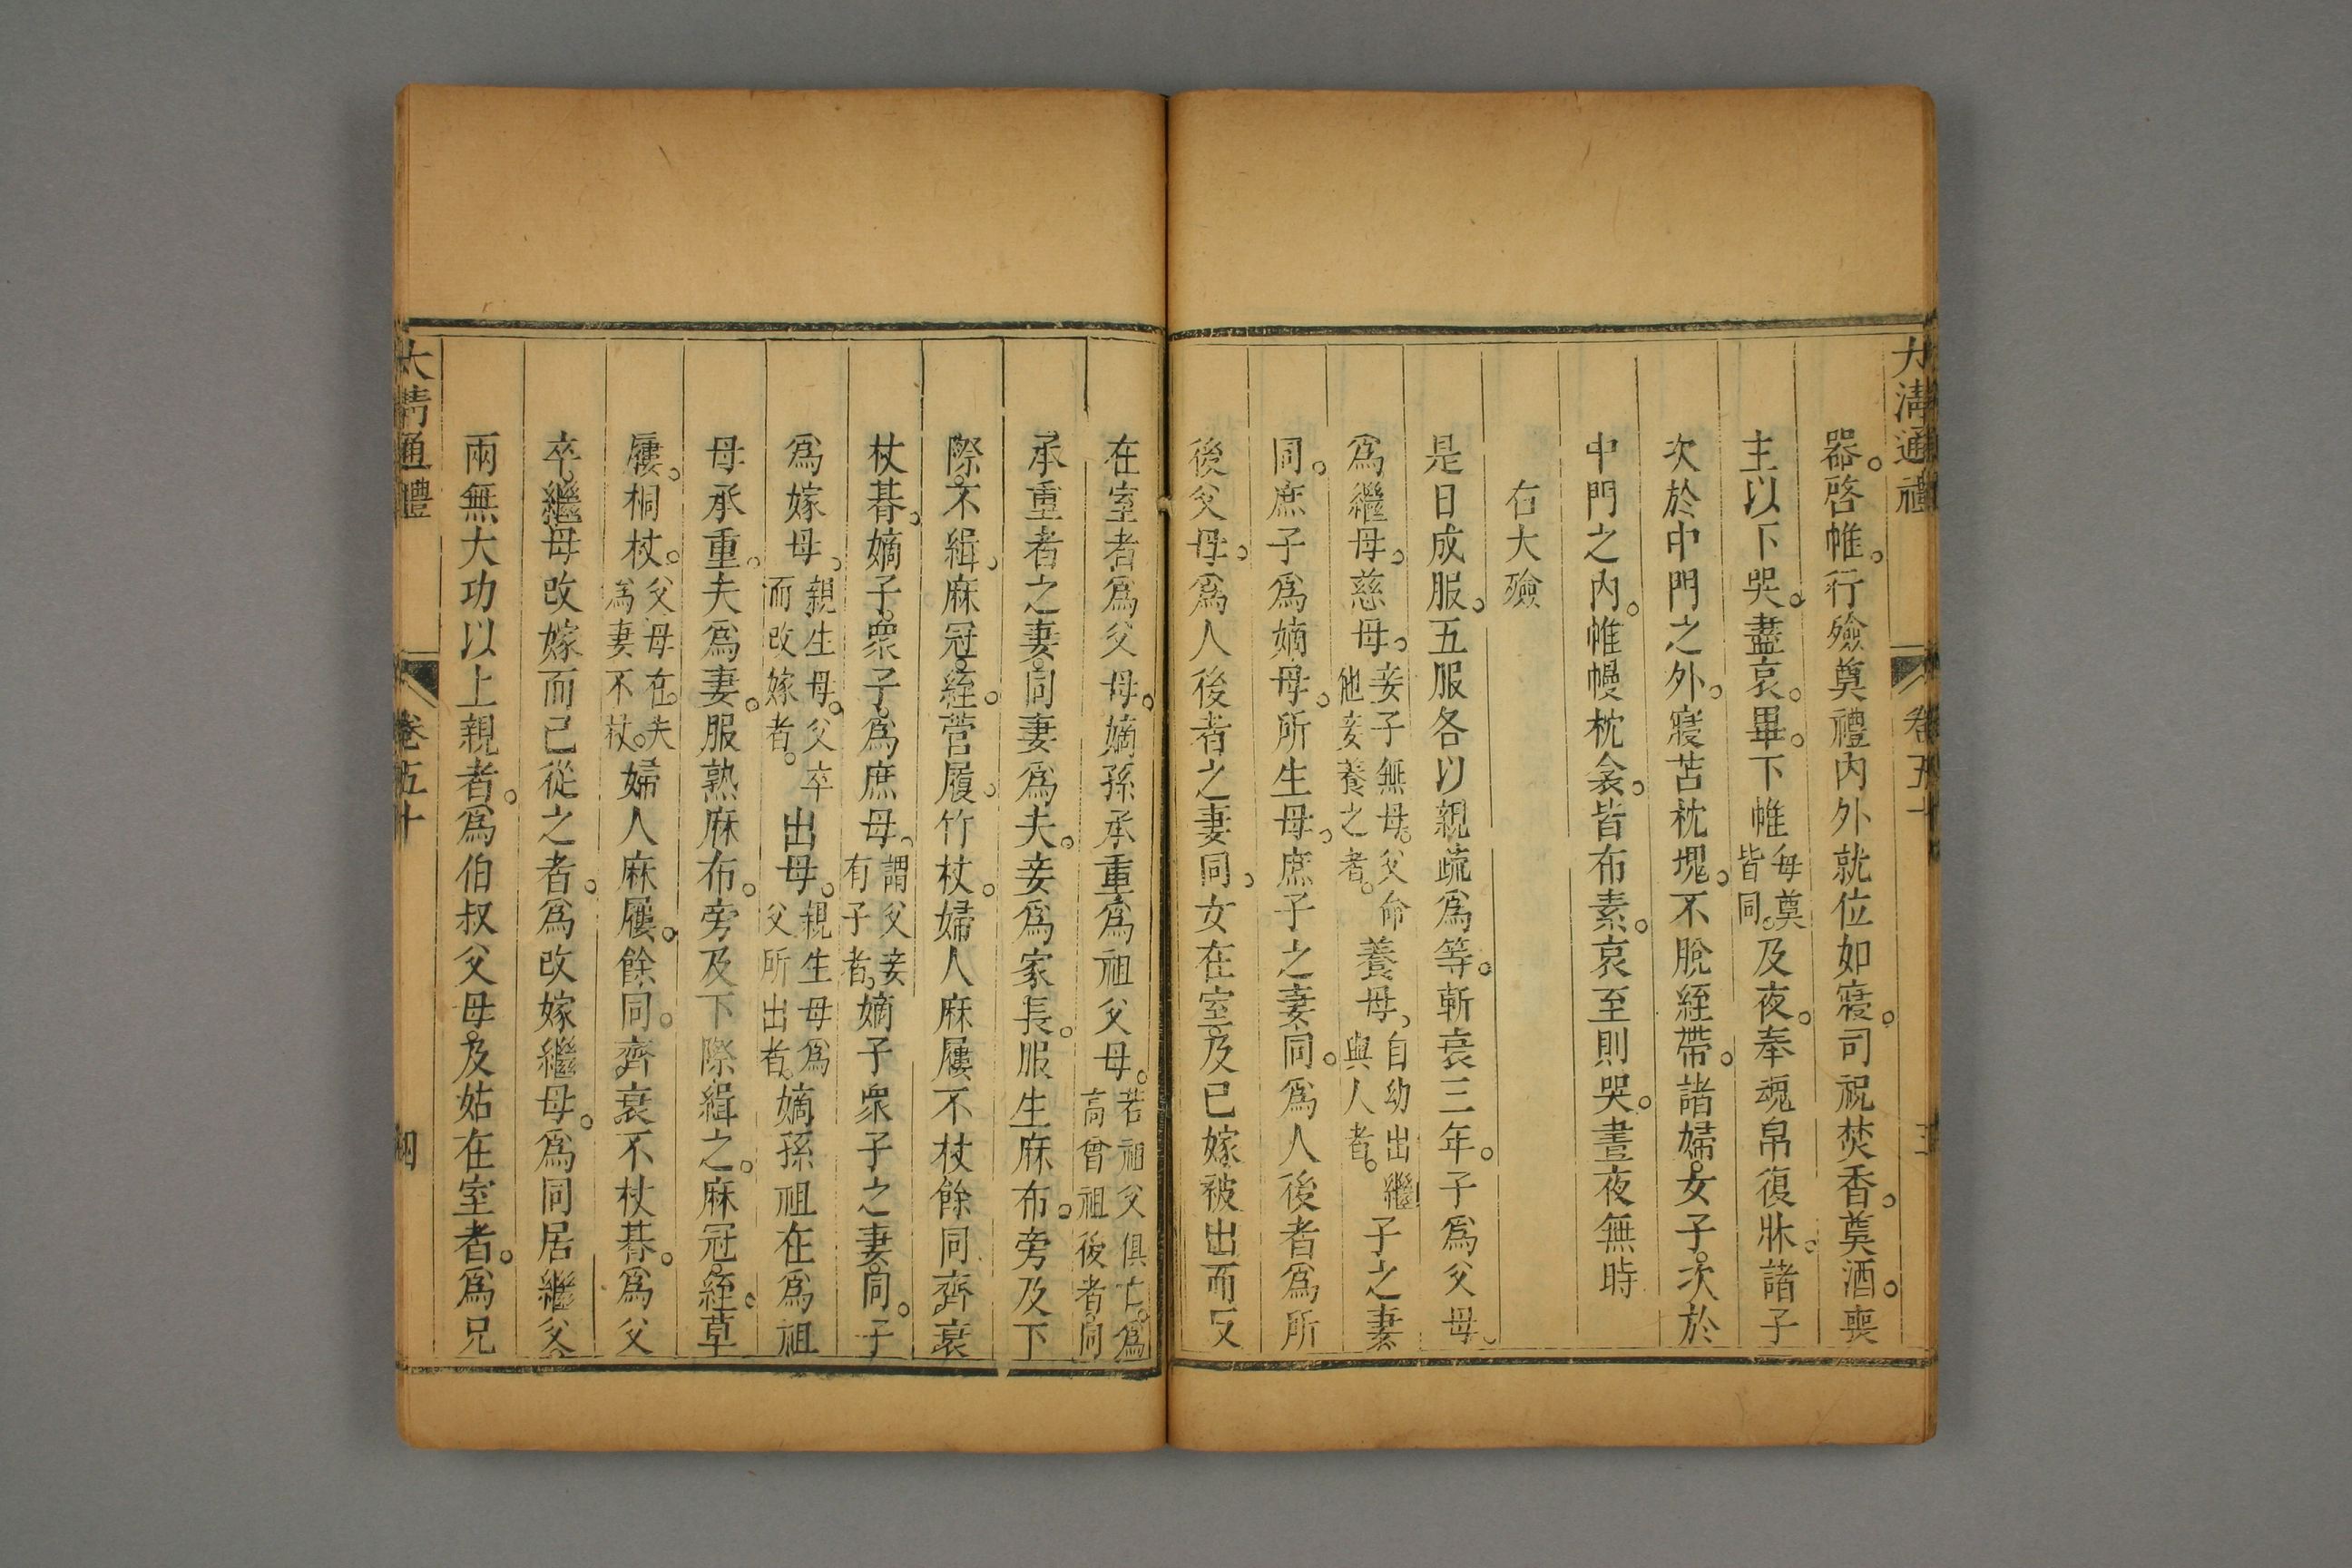 大清通禮 卷五十 三
器。啓帷。行殮奠禮內外就位如寢。司祝焚香。奠酒。喪
主以下哭。盡哀。畢。下帷每奠皆同。及夜。奉魂帛復牀。諸子
次於中門之外。寢苫枕塊。不脫絰帶。諸婦女子。次於
中門之內。帷幔枕衾。皆布素。哀至則哭。晝夜無時
右大殮
是日成服。五服各以親疏爲等。斬衰三年。子爲父母。
爲繼母。慈母。妾子無母。父命他妾養之者。養母。自幼出繼與人者。子之妻
同。庶子爲嫡母。所生母。庶子之妻同。爲人後者爲所
後父母。爲人後者之妻同。女在室及已嫁被出而反
在室者爲父母。嫡孫承重爲祖父母。若祖父俱亡。爲高曾祖後者。同
承重者之妻。同妻爲夫。妾爲家長。服生麻布。旁及下
際。不緝。麻冠。絰。菅履。竹杖。婦人麻屨不杖餘同齊衰
杖朞。嫡子。衆子。爲庶母。謂父妾有子者。嫡子衆子之妻。同。子
爲嫁母。親生母。父卒而改嫁者。出母。親生母爲父所出者。嫡孫祖在爲祖
母承重。夫爲妻。服熟麻布。旁及下際緝之。麻冠。絰。草
屨。桐杖。父母在。夫爲妻不杖。婦人麻屨。餘同。齊衰不杖朞。爲父
卒。繼母改嫁而己從之者。爲改嫁繼母。爲同居繼父
兩無大功以上親者。爲伯叔父母。及姑在室者。爲兄
大清通禮 卷五十 四